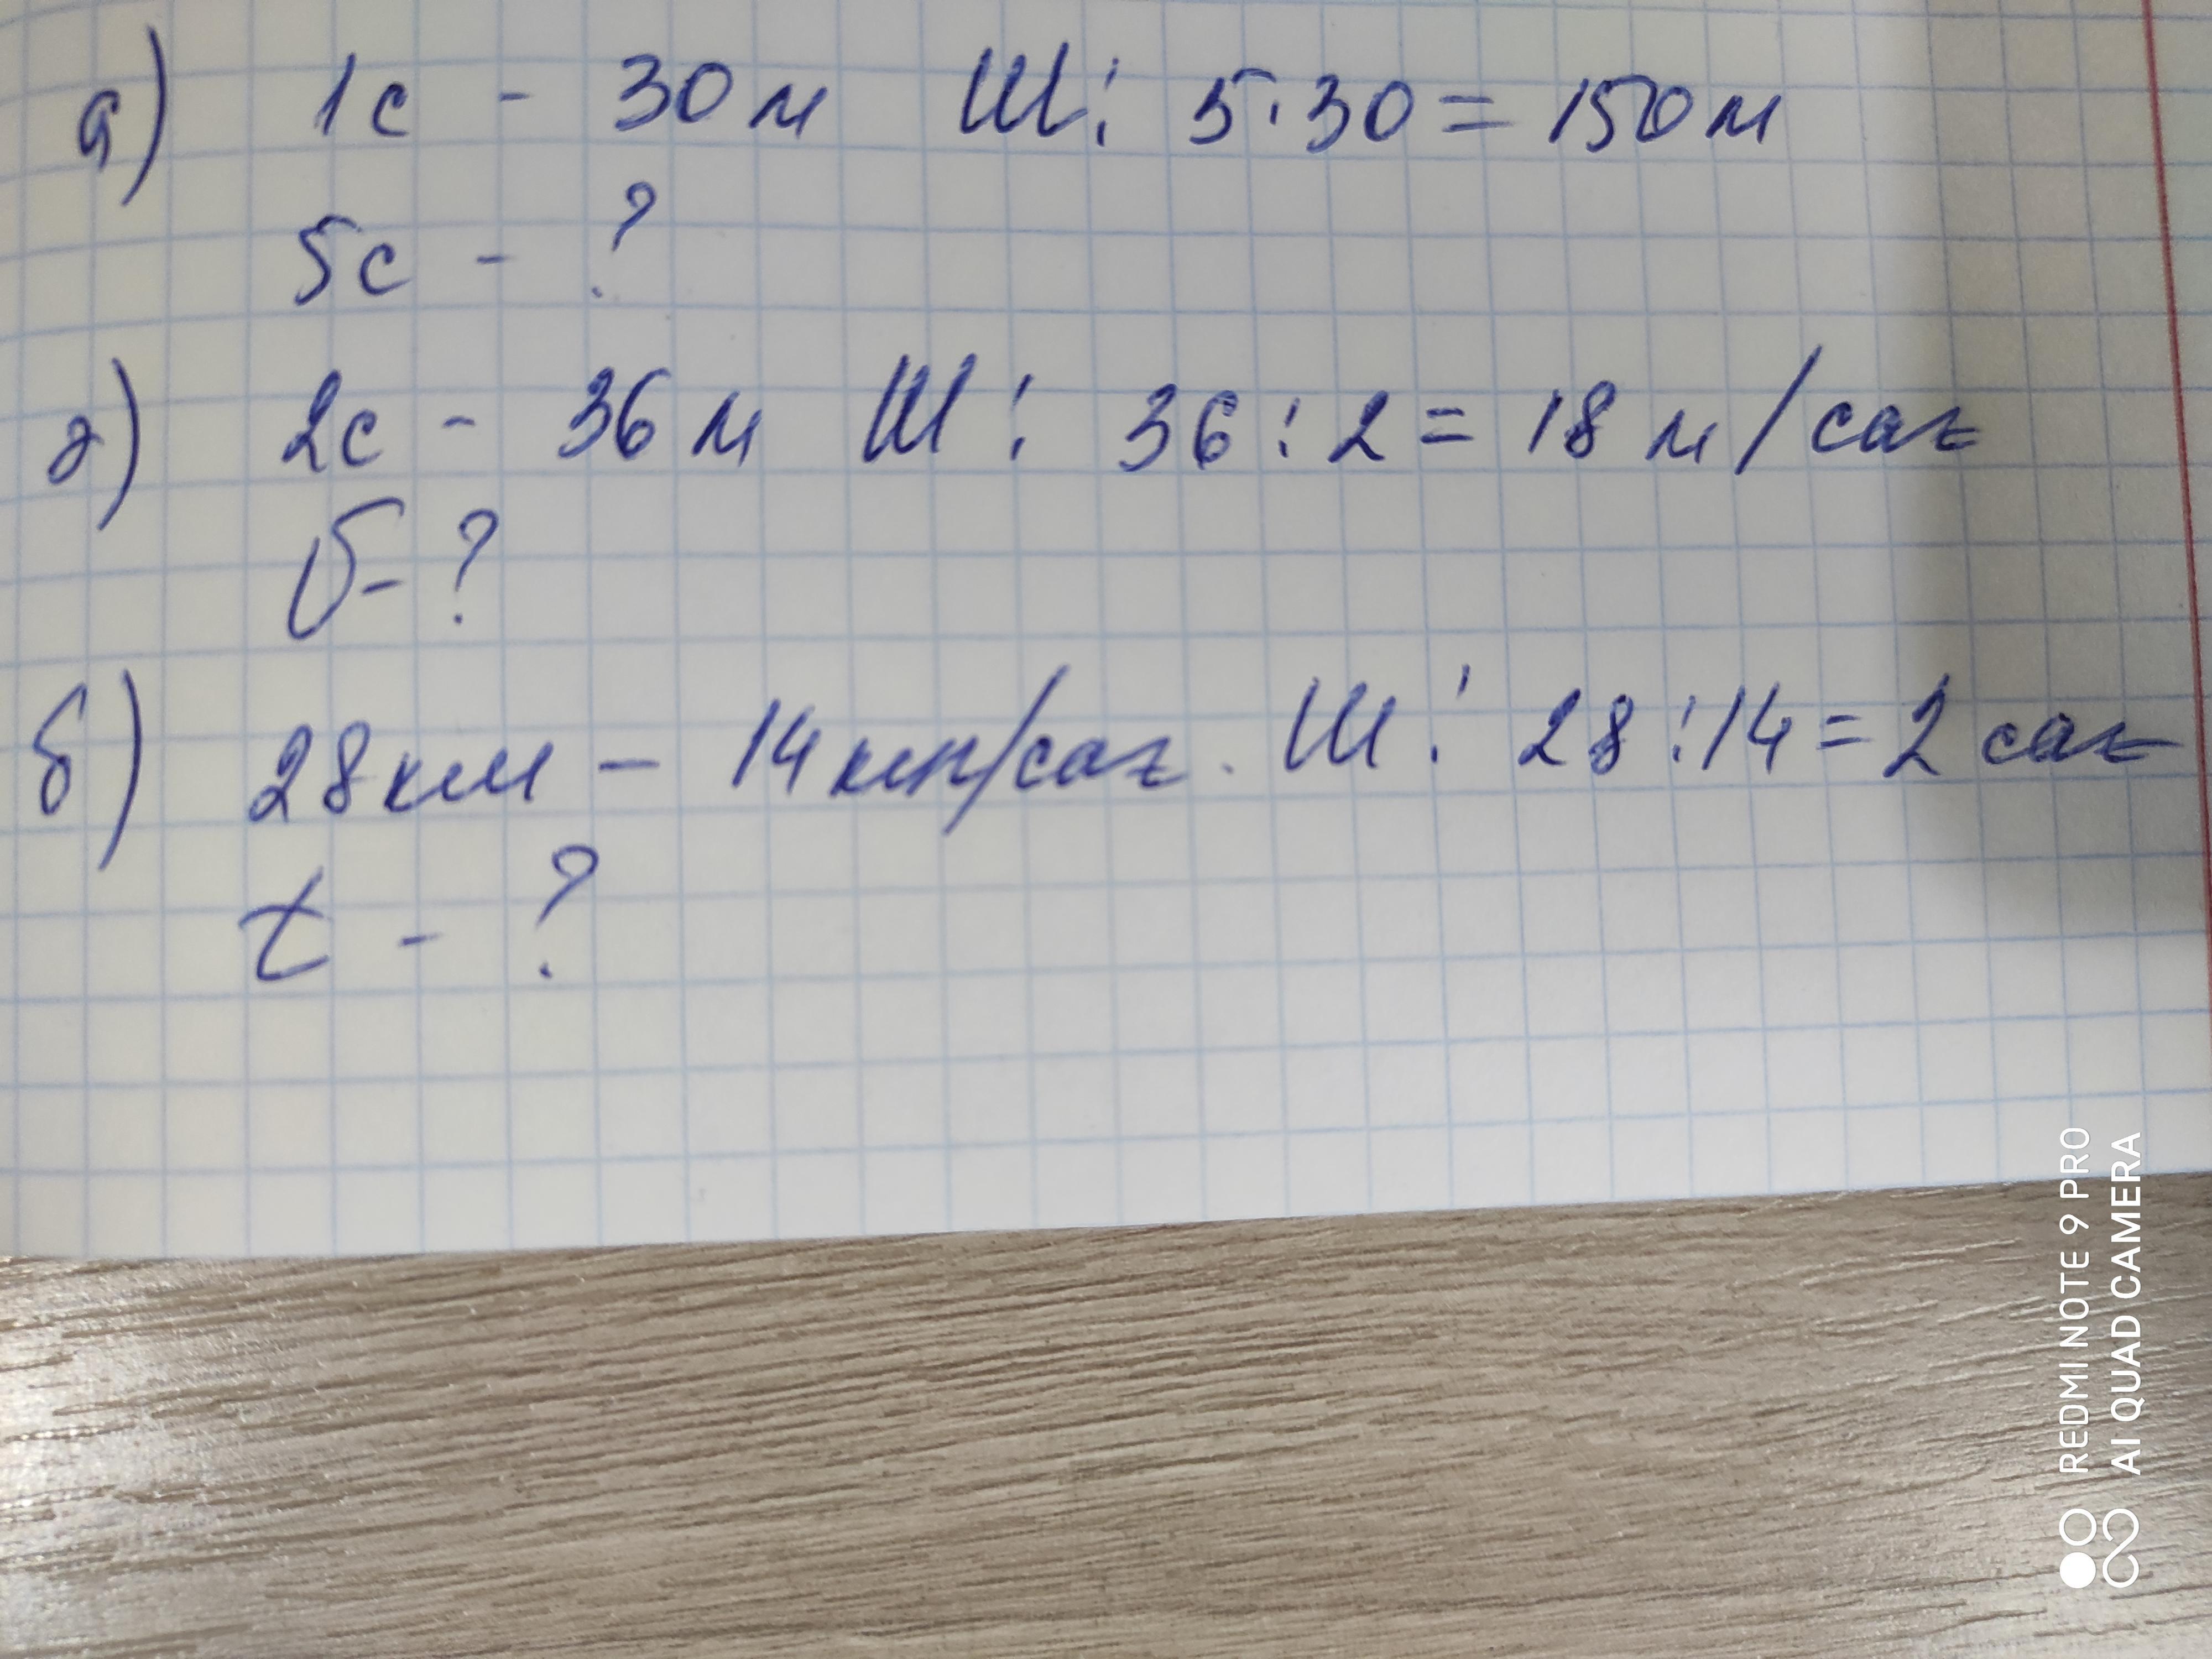 а) 1с - 30 м Ш: 5·30 = 150 м
5с - ?
ә) 2с - 36 м Ш: 36:2 = 18 м/сағ
V - ?
б) 28 км - 14 км/сағ. Ш: 28:14 = 2 сағ
t - ?
REDMI NOTE 9 PRO
AI QUAD CAMERA